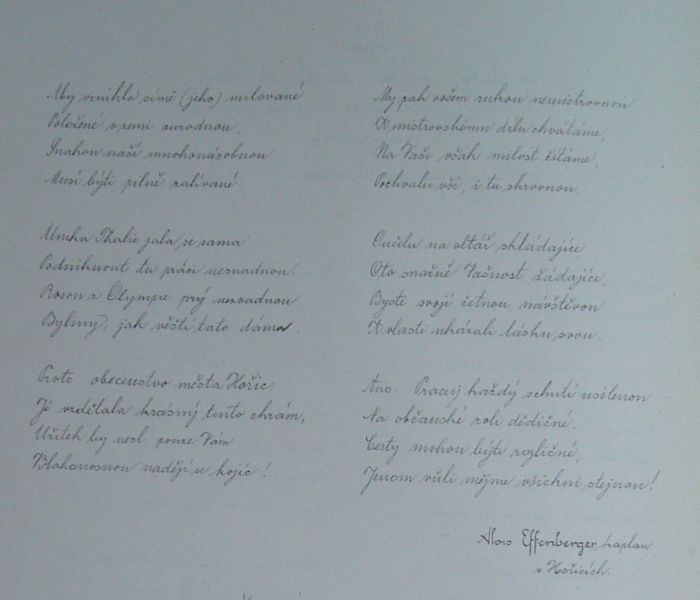 Aby vzniklo símě (jeho) milované
Položené v zemi ourodnou,
Snahou naší mnohonásobnou
Musí býti pilně zalívané.
Umka Thalie jala se sama
Podniknout tu práci nesnadnou.
Rosou z Olympu prý nezvadnou
Byliny, jak věstí tato dáma.
Proto obecenstvo města Hořic
Jí vzdělala krásný tento chrám,
Užitek by nesl pouze Vám
Blahonosnou nadějí se kojíc!
My pak ovšem rukou nemistrovnou
K mistrovskému dílu chvátáme,
Na Vaši však milost čítáme,
Pochvalu vší, i tu skrovnou.
Outělu na oltář skládajíce
Oto snažně Vašnost žádajíce,
Byste svojí četnou návštěvou
K vlasti ukázali lásku svou.
Ano: Pracuj každý s chutí usilenou
Na občanské roli dědičné,
Cesty mohou býti rozličné,
Jenom vůli mějme všichni stejnou!
Alois Effenberger, kaplan
v Hořicích.